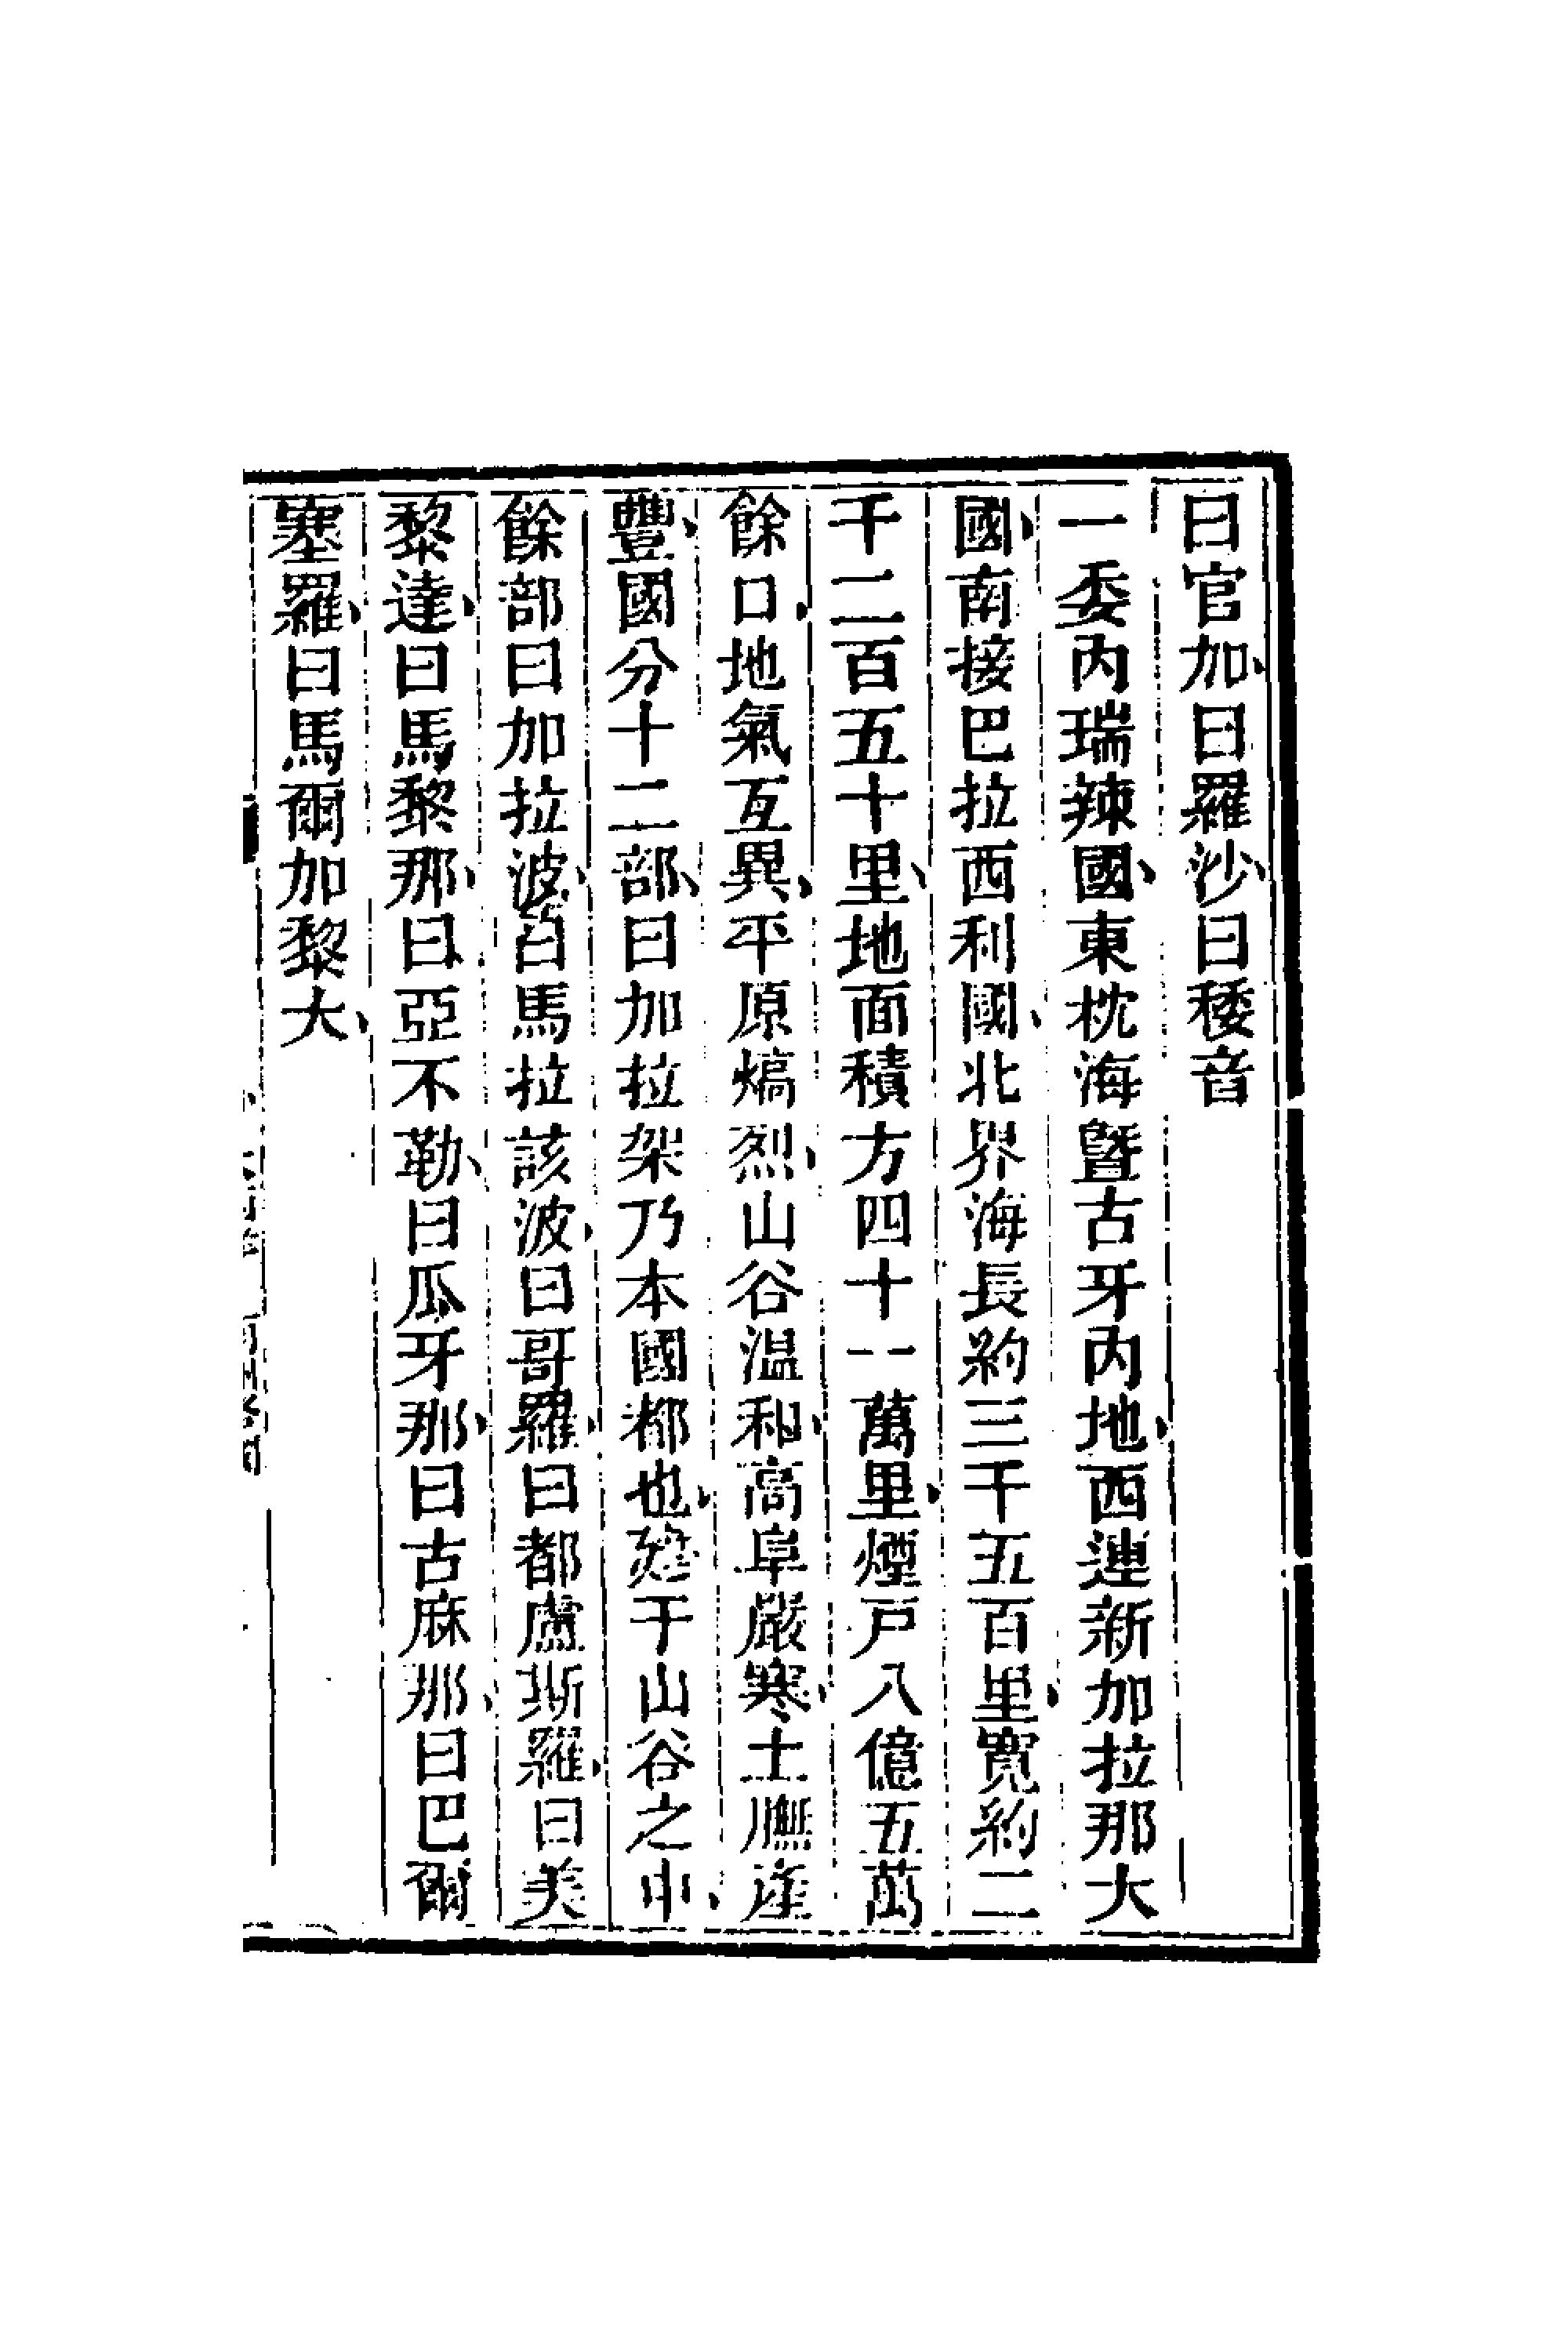 曰官加、曰羅沙、曰稜音
一委內瑞辣國、東枕海暨古牙內地、西連新加拉那大
國、南接巴拉西利國、北界海長約三千五百里、寬約二
千二百五十里、地面積方四十一萬里、煙戸八億五萬
餘口、地氣互異、平原熇烈、山谷温和、高阜嚴寒、土膴產
豐、國分十二部、曰加拉架乃本國都也、建于山谷之中、
餘部曰加拉波、曰馬拉該波、曰哥羅、曰都盧斯羅、曰美
黎達、曰馬黎那、曰亞不勒、曰瓜牙那、曰古麻那、曰巴爾
塞羅、曰馬爾加黎大、